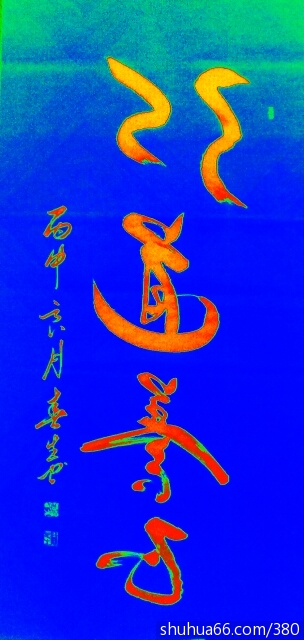 以道養
丙申六月春生书
shuhua66.com/380